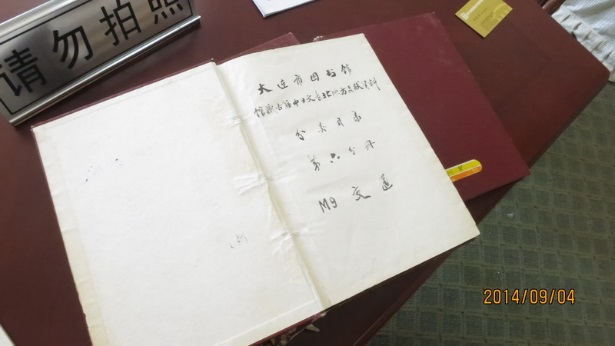 请勿拍照
大连市图书馆
馆藏古旧中日文东北地方文献资料
分类目录
第六分册
M9 交通
2014/09/04